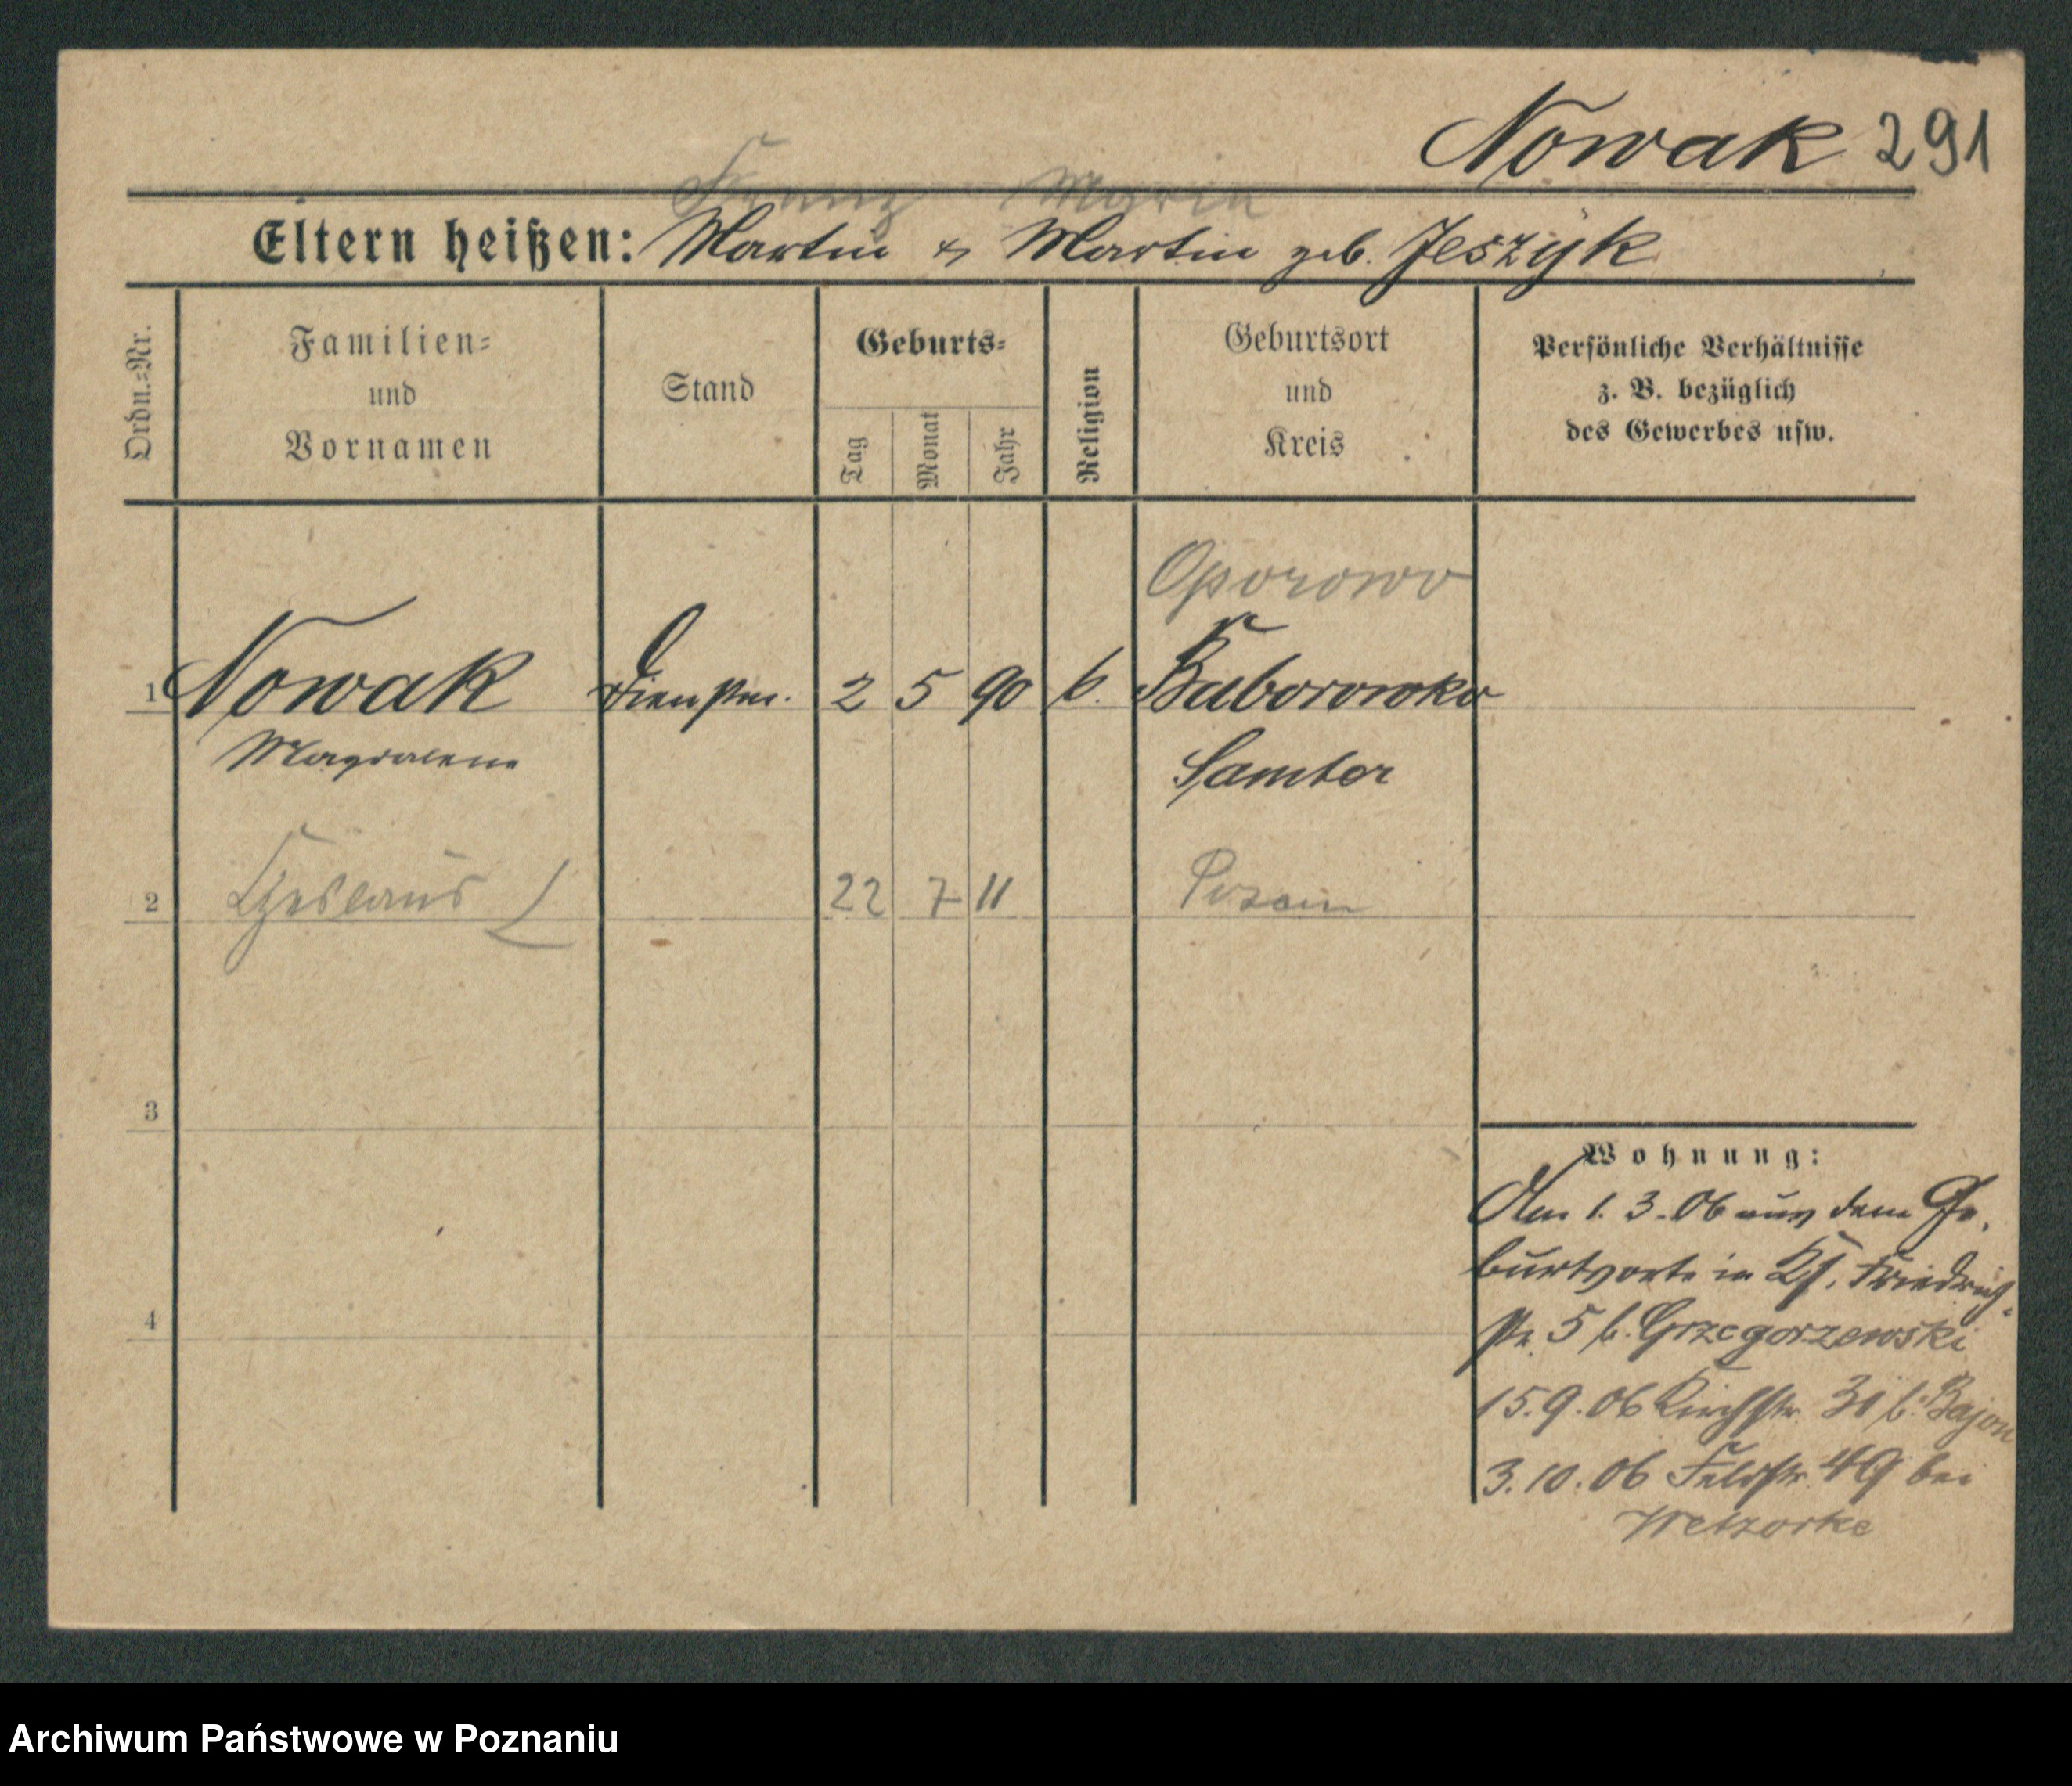 Nowak 291
Franz Maria
Eltern heißen: Martin & Martin geb. Jeszyk
Ordn.-Nr.
Familien-
und
Vornamen
Stand
Geburts-
Tag
Monat
Jahr
Religion
Geburtsort
und
Kreis
Persönliche Verhältnisse
z. B. bezüglich
des Gewerbes usw.
Oporowo
1 Nowak Dienstm. 2 5 90 k. Baborowko
Magdalena Samter
2 Czeslaus 22 7 11 Posen
3
4
Wohnung:
Am 1. 3. 06 aus dem Ge-
burtsorte in Friedrich-
str. 5 b. Grzegorzewski
15.9.06 Kirchstr. 31 b. Bajon
3.10.06 Feldstr. 49 bei
Archiwum Państwowe w Poznaniu